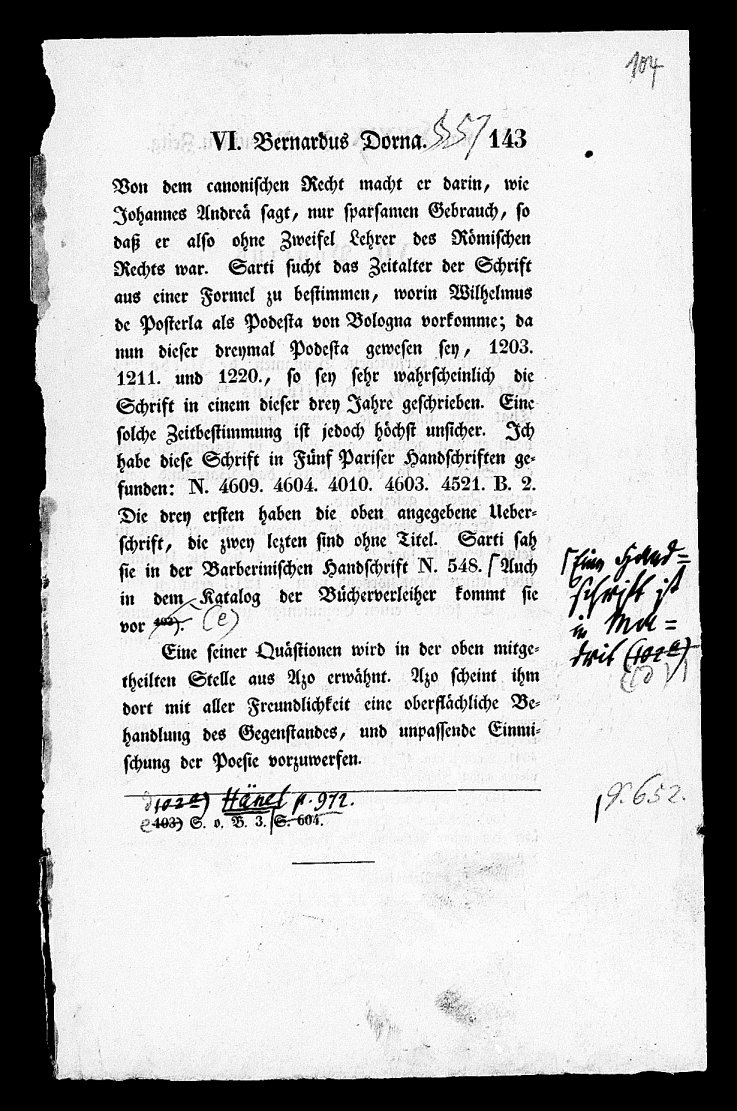 104
VI. Bernardus Dorna. 143
Von dem canonischen Recht macht er darin, wie
Johannes Andreä sagt, nur sparsamen Gebrauch, so
daß er also ohne Zweifel Lehrer des Römischen
Rechts war. Sarti sucht das Zeitalter der Schrift
aus einer Formel zu bestimmen, worin Wilhelmus
de Posterla als Podesta von Bologna vorkomme; da
nun dieser dreymal Podesta gewesen sey, 1203.
1211. und 1220., so sey sehr wahrscheinlich die
Schrift in einem dieser drey Jahre geschrieben. Eine
solche Zeitbestimmung ist jedoch höchst unsicher. Ich
habe diese Schrift in Fünf Pariser Handschriften ge-
funden: N. 4609. 4604. 4010. 4603. 4521. B. 2.
Die drey ersten haben die oben angegebene Ueber-
schrift, die zwey lezten sind ohne Titel. Sarti sah
sie in der Barberinischen Handschrift N. 548. Auch
in dem Katalog der Bücherverleiher kommt sie
vor 103). (e)
Eine seiner Quästionen wird in der oben mitge-
theilten Stelle aus Azo erwähnt. Azo scheint ihm
dort mit aller Freundlichkeit eine oberflächliche Be-
handlung des Gegenstandes, und unpassende Einmi-
schung der Poesie vorzuwerfen.
Eine Hand-
schrift ist
in Ma-
drit (102a)
(d)
d 102a) Hänel p. 972.
e 103) S. o. B. 3. S. 604.
S. 652.